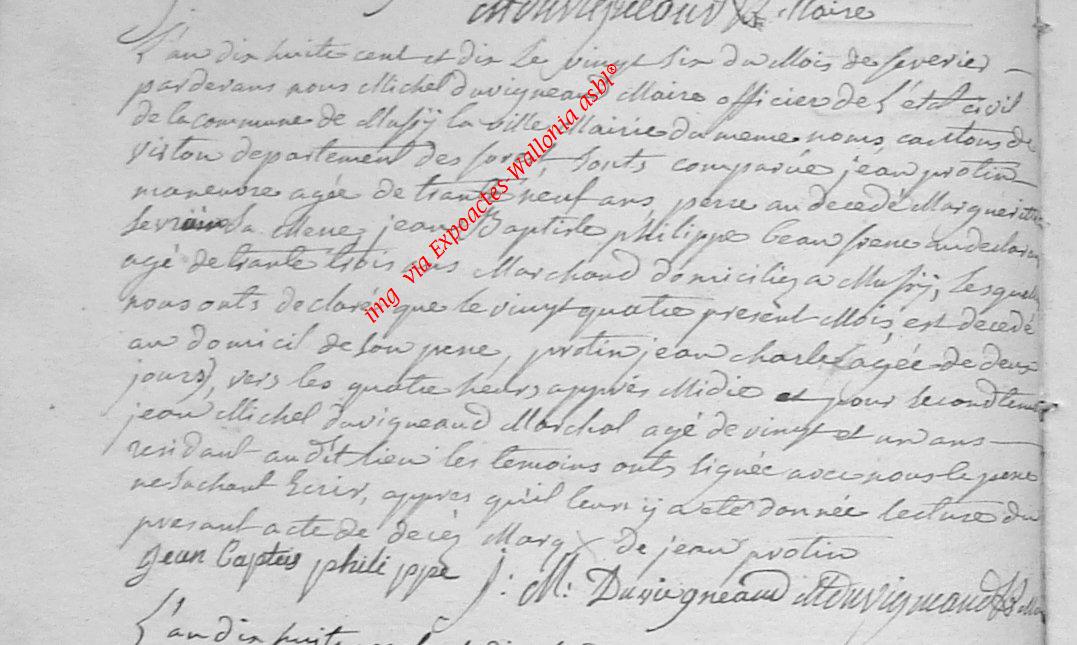 Duvigneaud Maire
L'an dix huite cent et dix le vingt six du Mois de feverier
pardevans nous Michel duvigneaud Maire officier de l'état civil
de la commune de Mussÿ la ville Mairie du meme noms, cantons de
virton departement des forets, sonts comparue jean protin
maneuvre agée de trante neuf ans, perre au decedé Marguerite
sa Mere, jean Baptiste philippe beaufrere au declarant
agé de trante trois ans Marchand domiciliez a Mussÿ, lesquels
nous onts declaré que le vingt quatre présent Mois, est decedé
au domicil de son pere, protin jean charle (agée de deux
jours), vers les quatre heurs apprés Midie et pour second temoin
jean Michel duvigneaud Marchal agé de vingt et un ans
residant audit lieu les temoins onts signée avec nous le pere
ne sachant Ecrir, appres qu'il leurs ÿ a eté donnée lecture du
presant acte de decéz Marq X de jean protin
jean baptis philippe J: M: Duvigneaud M duvigneaud
L'an dix huite
img via Expoactes Wallonia asbl®